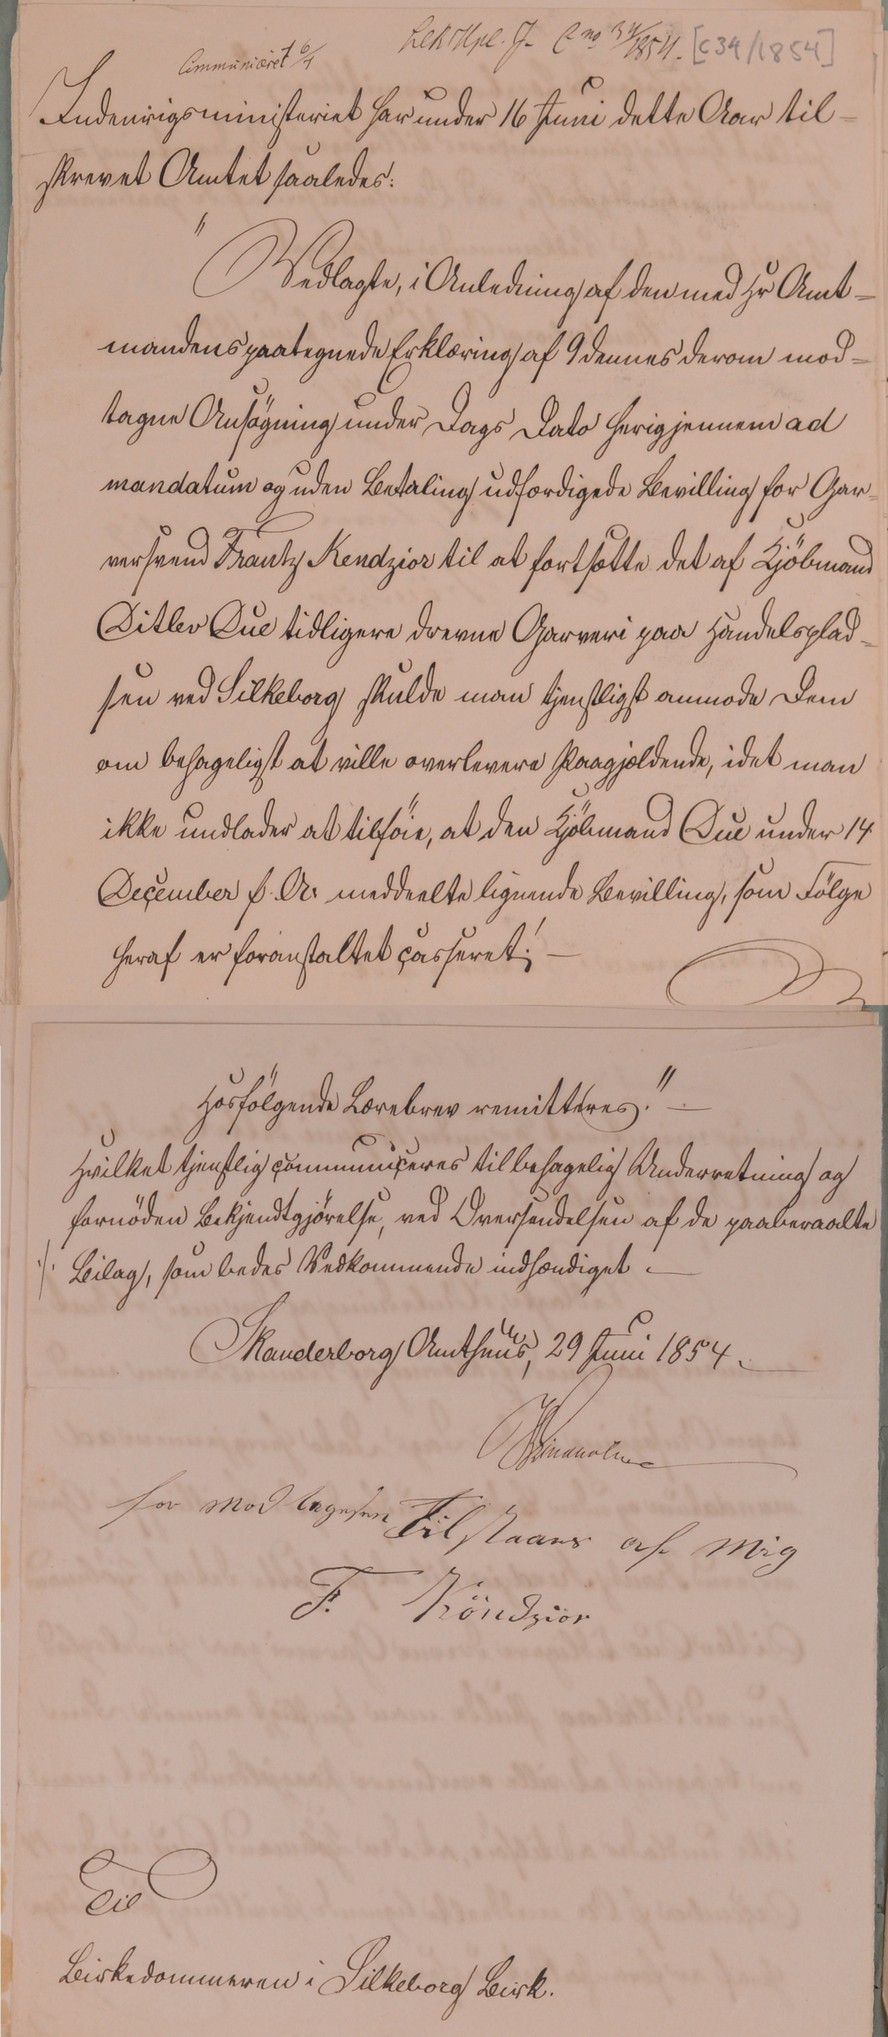 Communiceret 6/7
C no 34/1854. [C34/1854]
Indenrigsministeriet har under 16 Juni dette Aar til-
skrevet Amtet saaledes:
"Vedlagte, i Anledning af den med Hr Amt-
mandens paategnede Erklæring af 9 dennes derom mod-
tagne Ansøgning under Dags Dato herigjennem ad
mandatum og uden Betaling udfærdigede Bevilling for Gar-
versvend Frantz Kendzior til at fortsætte det af Kjöbmand
Ditlev Due tidligere drevne Garveri paa Handelsplad-
sen ved Silkeborg skulde man tjenstligst anmode Dem
om behageligst at ville overlevere Paagjældende, idet man
ikke undlader at tilföie, at den Kjöbmand Due under 14
December f. A. meddeelte lignende Bevilling, som Fölge
heraf er foranstaltet casseret; —
Hosfölgende Lærebrev remitteres." —
Hvilket tjenstlig communiceres til behagelig Underretning og
fornöden Bekjendtgjörelse, ved Oversendelsen af de paaberaabte
./. Bilag, som bedes Vedkommende indhændiget. —
Skanderborg Amthuus, 29 Juni 1854.
for modtagelsen Tilstaaes af mig
F. Köndzior
Til
Birkedommeren i Silkeborg Birk.